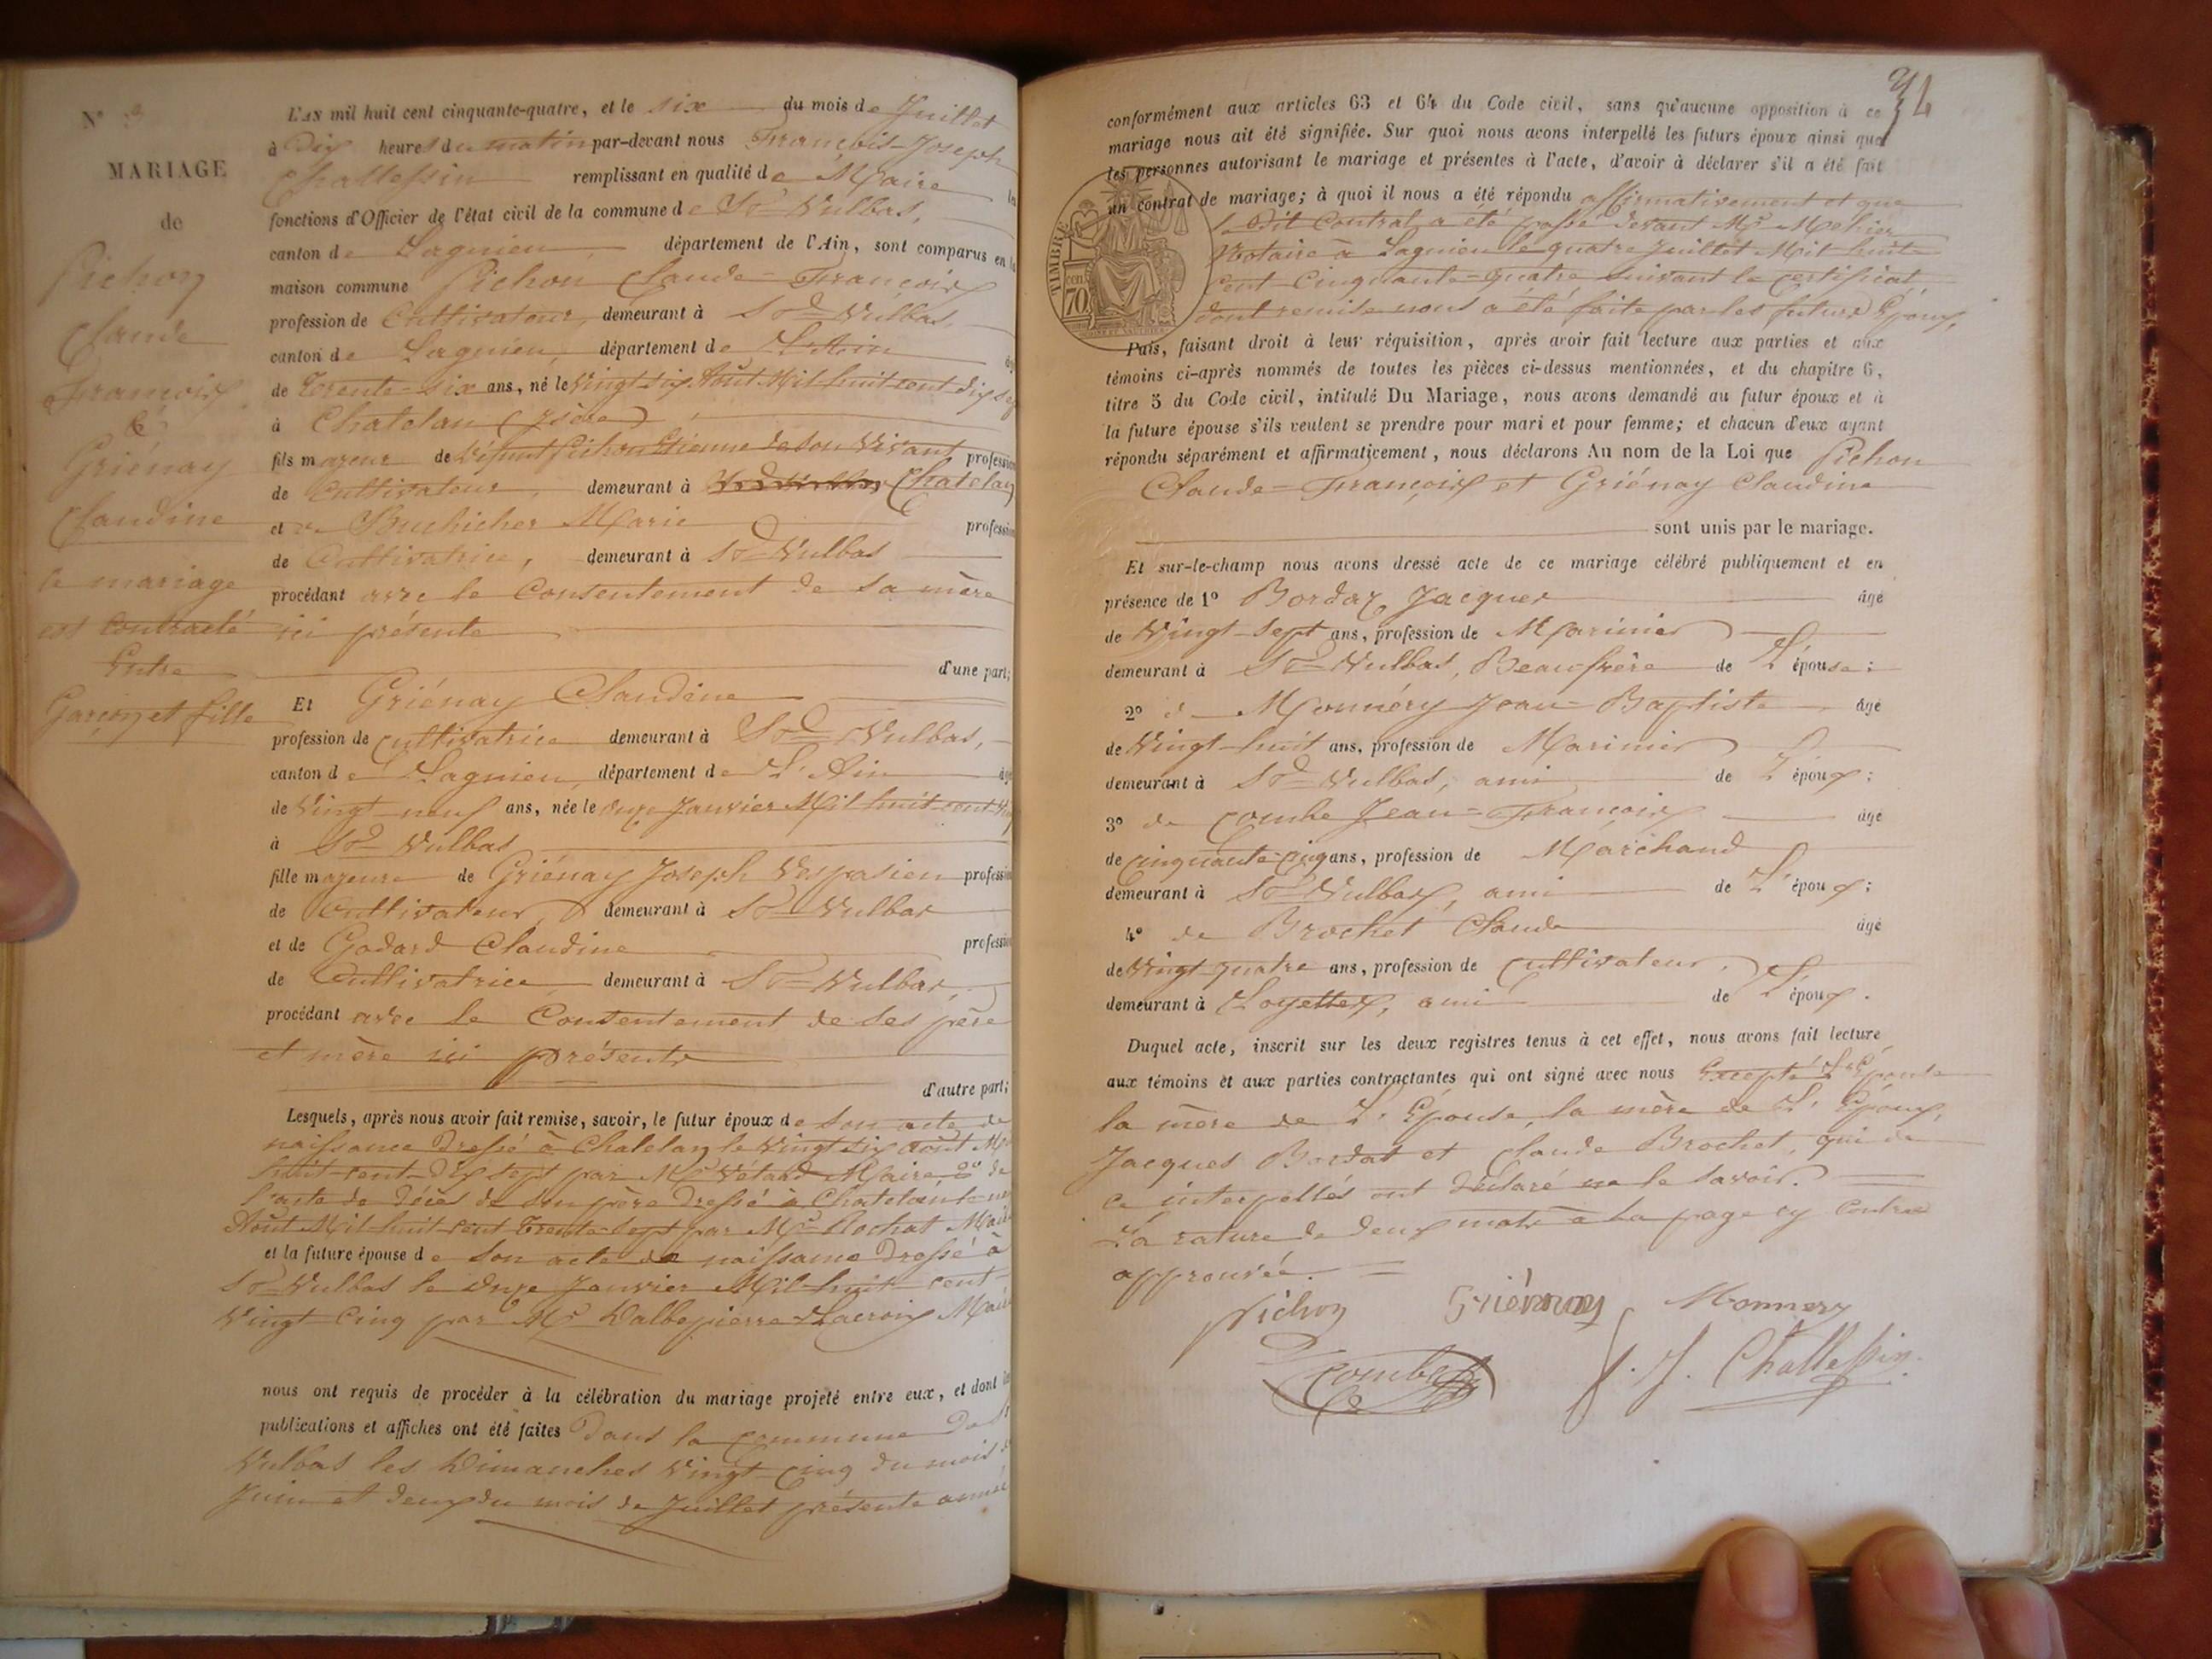 N° 3
MARIAGE
de
Pichon
Claude
François
&
Griénay
Claudine
le mariage
est contracté
Entre
Garçon et fille
L'AN mil huit cent cinquante-quatre, et le six du mois de Juillet
à Dix heures du matin par-devant nous François-Joseph
Challessin remplissant en qualité de Maire les
fonctions d'Officier de l'état civil de la commune de St Vulbas,
canton de Lagnieu, département de l'Ain, sont comparus en la
maison commune Pichon Claude-François
profession de Cultivateur, demeurant à St Vulbas,
canton de Lagnieu, département de L'Ain âgé
de Trente-six ans, né le Vingt six Août Mil huit cent dix sept
à Chatelan (Isère)
fils majeur de défunt Pichon Etienne de son Vivant profession
de Cultivateur, demeurant à Chatelan
et de Marie profession
de Cultivatrice, demeurant à St Vulbas
procédant avec le Consentement de sa mère
ici présente
d'une part;
Et Griénay Claudine
profession de Cultivatrice demeurant à St Vulbas,
canton de Lagnieu, département de L'Ain âgé
de Vingt-neuf ans, née le onze Janvier Mil huit cent
à St Vulbas
fille majeure de Griénay Joseph Vespasien profession
de Cultivateur, demeurant à St Vulbas
et de Godard Claudine profession
de Cultivatrice demeurant à St Vulbas,
procédant avec le Consentement de ses père
et mère ici présents
d'autre part;
Lesquels, après nous avoir fait remise, savoir, le futur époux de son acte de
naissance Dressé à Chatelan le Vingt six août Mil
huit-cent-Dix sept par Mr Maire, 2° de
l'acte de décès de son père Dressé à Chatelan le
Août Mil huit cent Trente-sept par Mr Maire
et la future épouse de son acte de naissance Dressé à
St Vulbas le onze Janvier Mil huit cent
Vingt Cinq par Mr Dalbepierre-Lacroix Maire
nous ont requis de procéder à la célébration du mariage projeté entre eux, et dont les
publications et affiches ont été faites Dans la Commune De St
Vulbas les Dimanches Vingt-Cinq du mois de
Juin et deux du mois de Juillet présente année
34
conformément aux articles 63 et 64 du Code civil, sans qu'aucune opposition à ce
mariage nous ait été signifiée. Sur quoi nous avons interpellé les futurs époux ainsi que
les personnes autorisant le mariage et présentes à l'acte, d'avoir à déclarer s'il a été fait
un contrat de mariage; à quoi il nous a été répondu affirmativement et que
le Dit Contrat a été passé devant Mr Mehier
Notaire à Lagnieu le quatre Juillet Mil huit
Cent Cinquante-quatre suivant le Certificat
dont remise nous a été faite par les futurs Epoux,
TIMBRE
70 cen
Puis, faisant droit à leur réquisition, après avoir fait lecture aux parties et aux
témoins ci-après nommés de toutes les pièces ci-dessus mentionnées, et du chapitre 6,
titre 5 du Code civil, intitulé Du Mariage, nous avons demandé au futur époux et à
la future épouse s'ils veulent se prendre pour mari et pour femme; et chacun d'eux ayant
répondu séparément et affirmativement, nous déclarons Au nom de la Loi que Pichon
Claude-François et Griénay Claudine
sont unis par le mariage.
Et sur-le-champ nous avons dressé acte de ce mariage célébré publiquement et en
présence de 1° Bordaz Jacques âgé
de Vingt-sept ans, profession de Marinier
demeurant à St Vulbas, Beau-frère de L'épouse;
2° de Monnéry Jean-Baptiste âgé
de Vingt-huit ans, profession de Marinier
demeurant à St Vulbas, ami de L'époux;
3° de Combe Jean-François âgé
de Cinquante-Cinq ans, profession de Marchand
demeurant à St Vulbas, ami de L'époux;
4° de Brochet Claude âgé
de Vingt quatre ans, profession de Cultivateur,
demeurant à Loyettes, ami de L'époux.
Duquel acte, inscrit sur les deux registres tenus à cet effet, nous avons fait lecture
aux témoins et aux parties contractantes qui ont signé avec nous Excepté L'Epouse
la mère de L'Epouse, la mère de L'Epoux,
Jacques Bordat et Claude Brochet, qui de
ce interpellés ont déclaré ne le savoir.
La rature de deux mots à la page cy Contre
approuvée.
Pichon Griénay Monnery
Combe f. J. Challessin